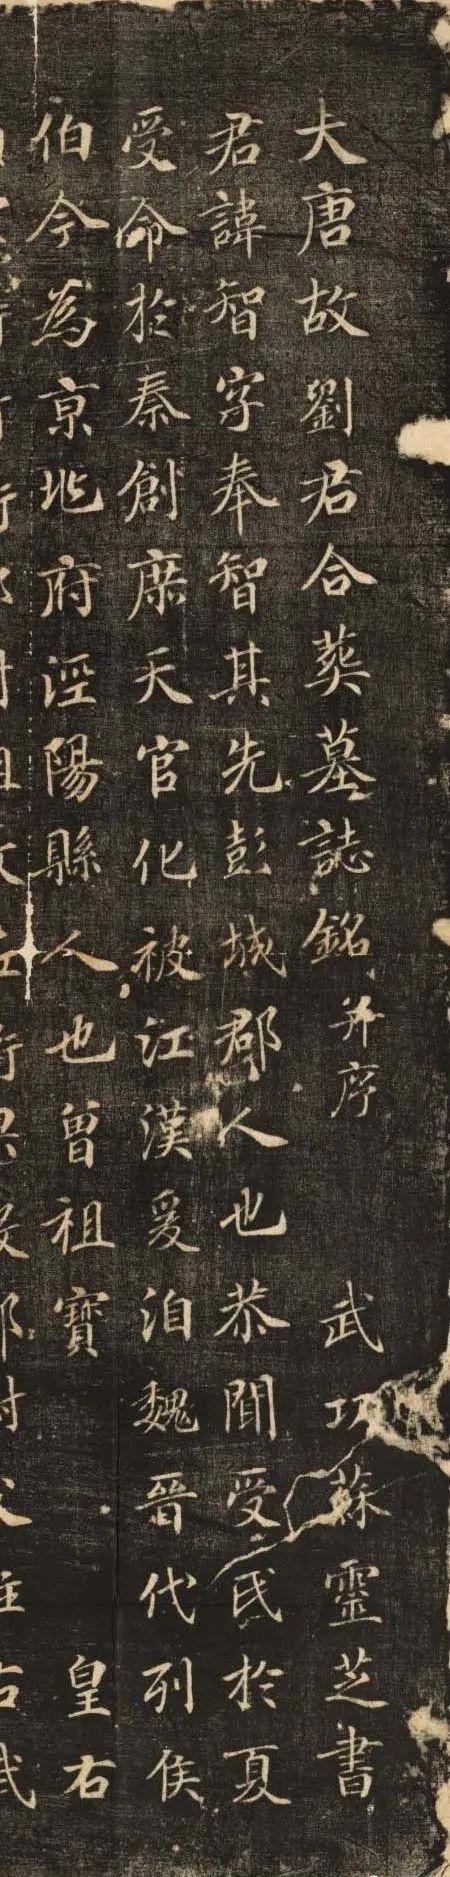 大唐故劉君合葬墓誌銘并序 武功蘇靈芝書
君諱智字奉智其先彭城郡人也恭聞受氏於夏
受命於秦創庶天官化被江漢爰洎魏晉代列侯
伯今為京兆府涇陽縣人也曾祖寶 皇右